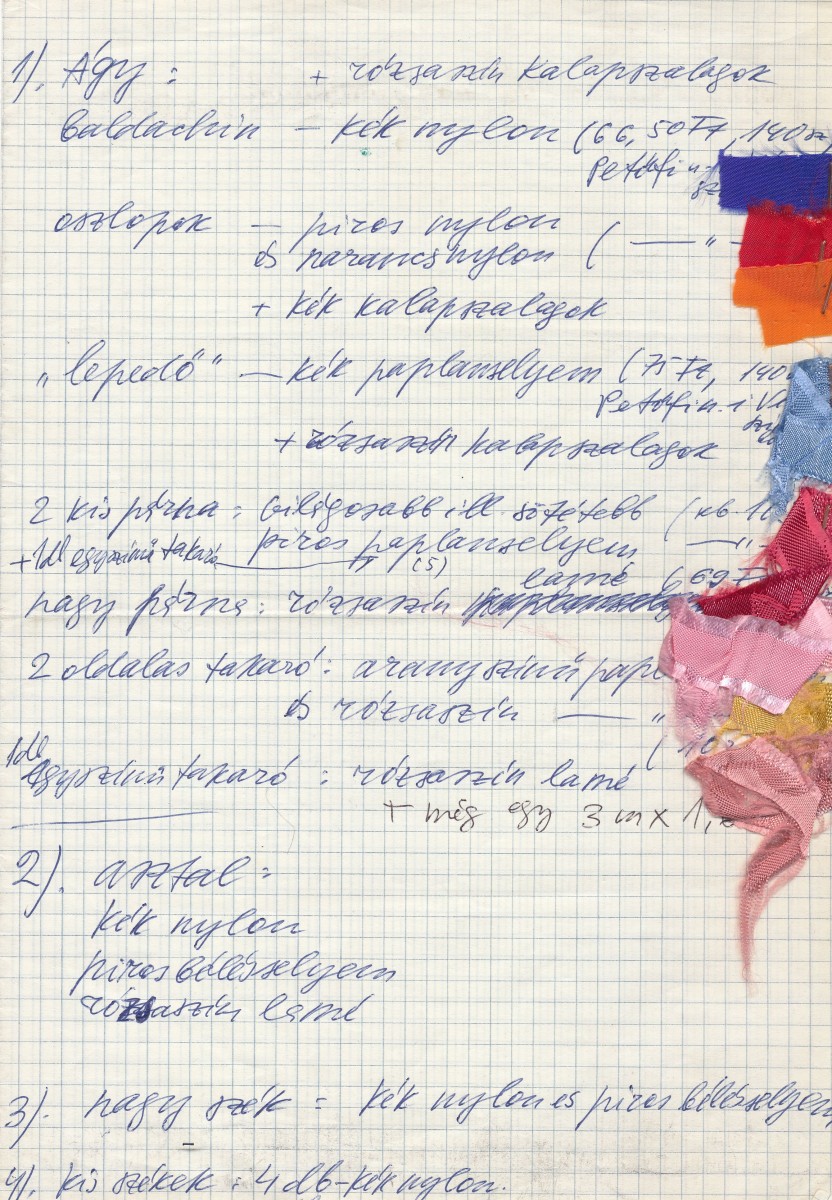 1). Ágy : + rózsaszín kalapszalagok
baldachin — kék nylon (66,50 Ft, 140
Petőfi u.
oszlopok — piros nylon
és narancsnylon ( — „ —
+ kék kalapszalagok
„lepedő” — kék paplanselyem (75 Ft, 140
Petőfi u. i
+ rózsaszín kalapszalagok
2 kis párna : világosabb ill. sötétebb (kb.
piros paplanselyem — „
+ 1 db egyszínű takaró (5)
lamé (69 F
nagy párna : rózsaszín
2 oldalas takaró : aranyszínű papl
és rózsaszín — „
(10
1 db
egyszínű takaró : rózsaszín lamé
+ még egy 3 m x 1,
2). asztal :
kék nylon
piros bélésselyem
rózsaszín lamé
3). nagy szék : kék nylon és piros bélésselyem
4). kis székek : 4 db - kék nylon.